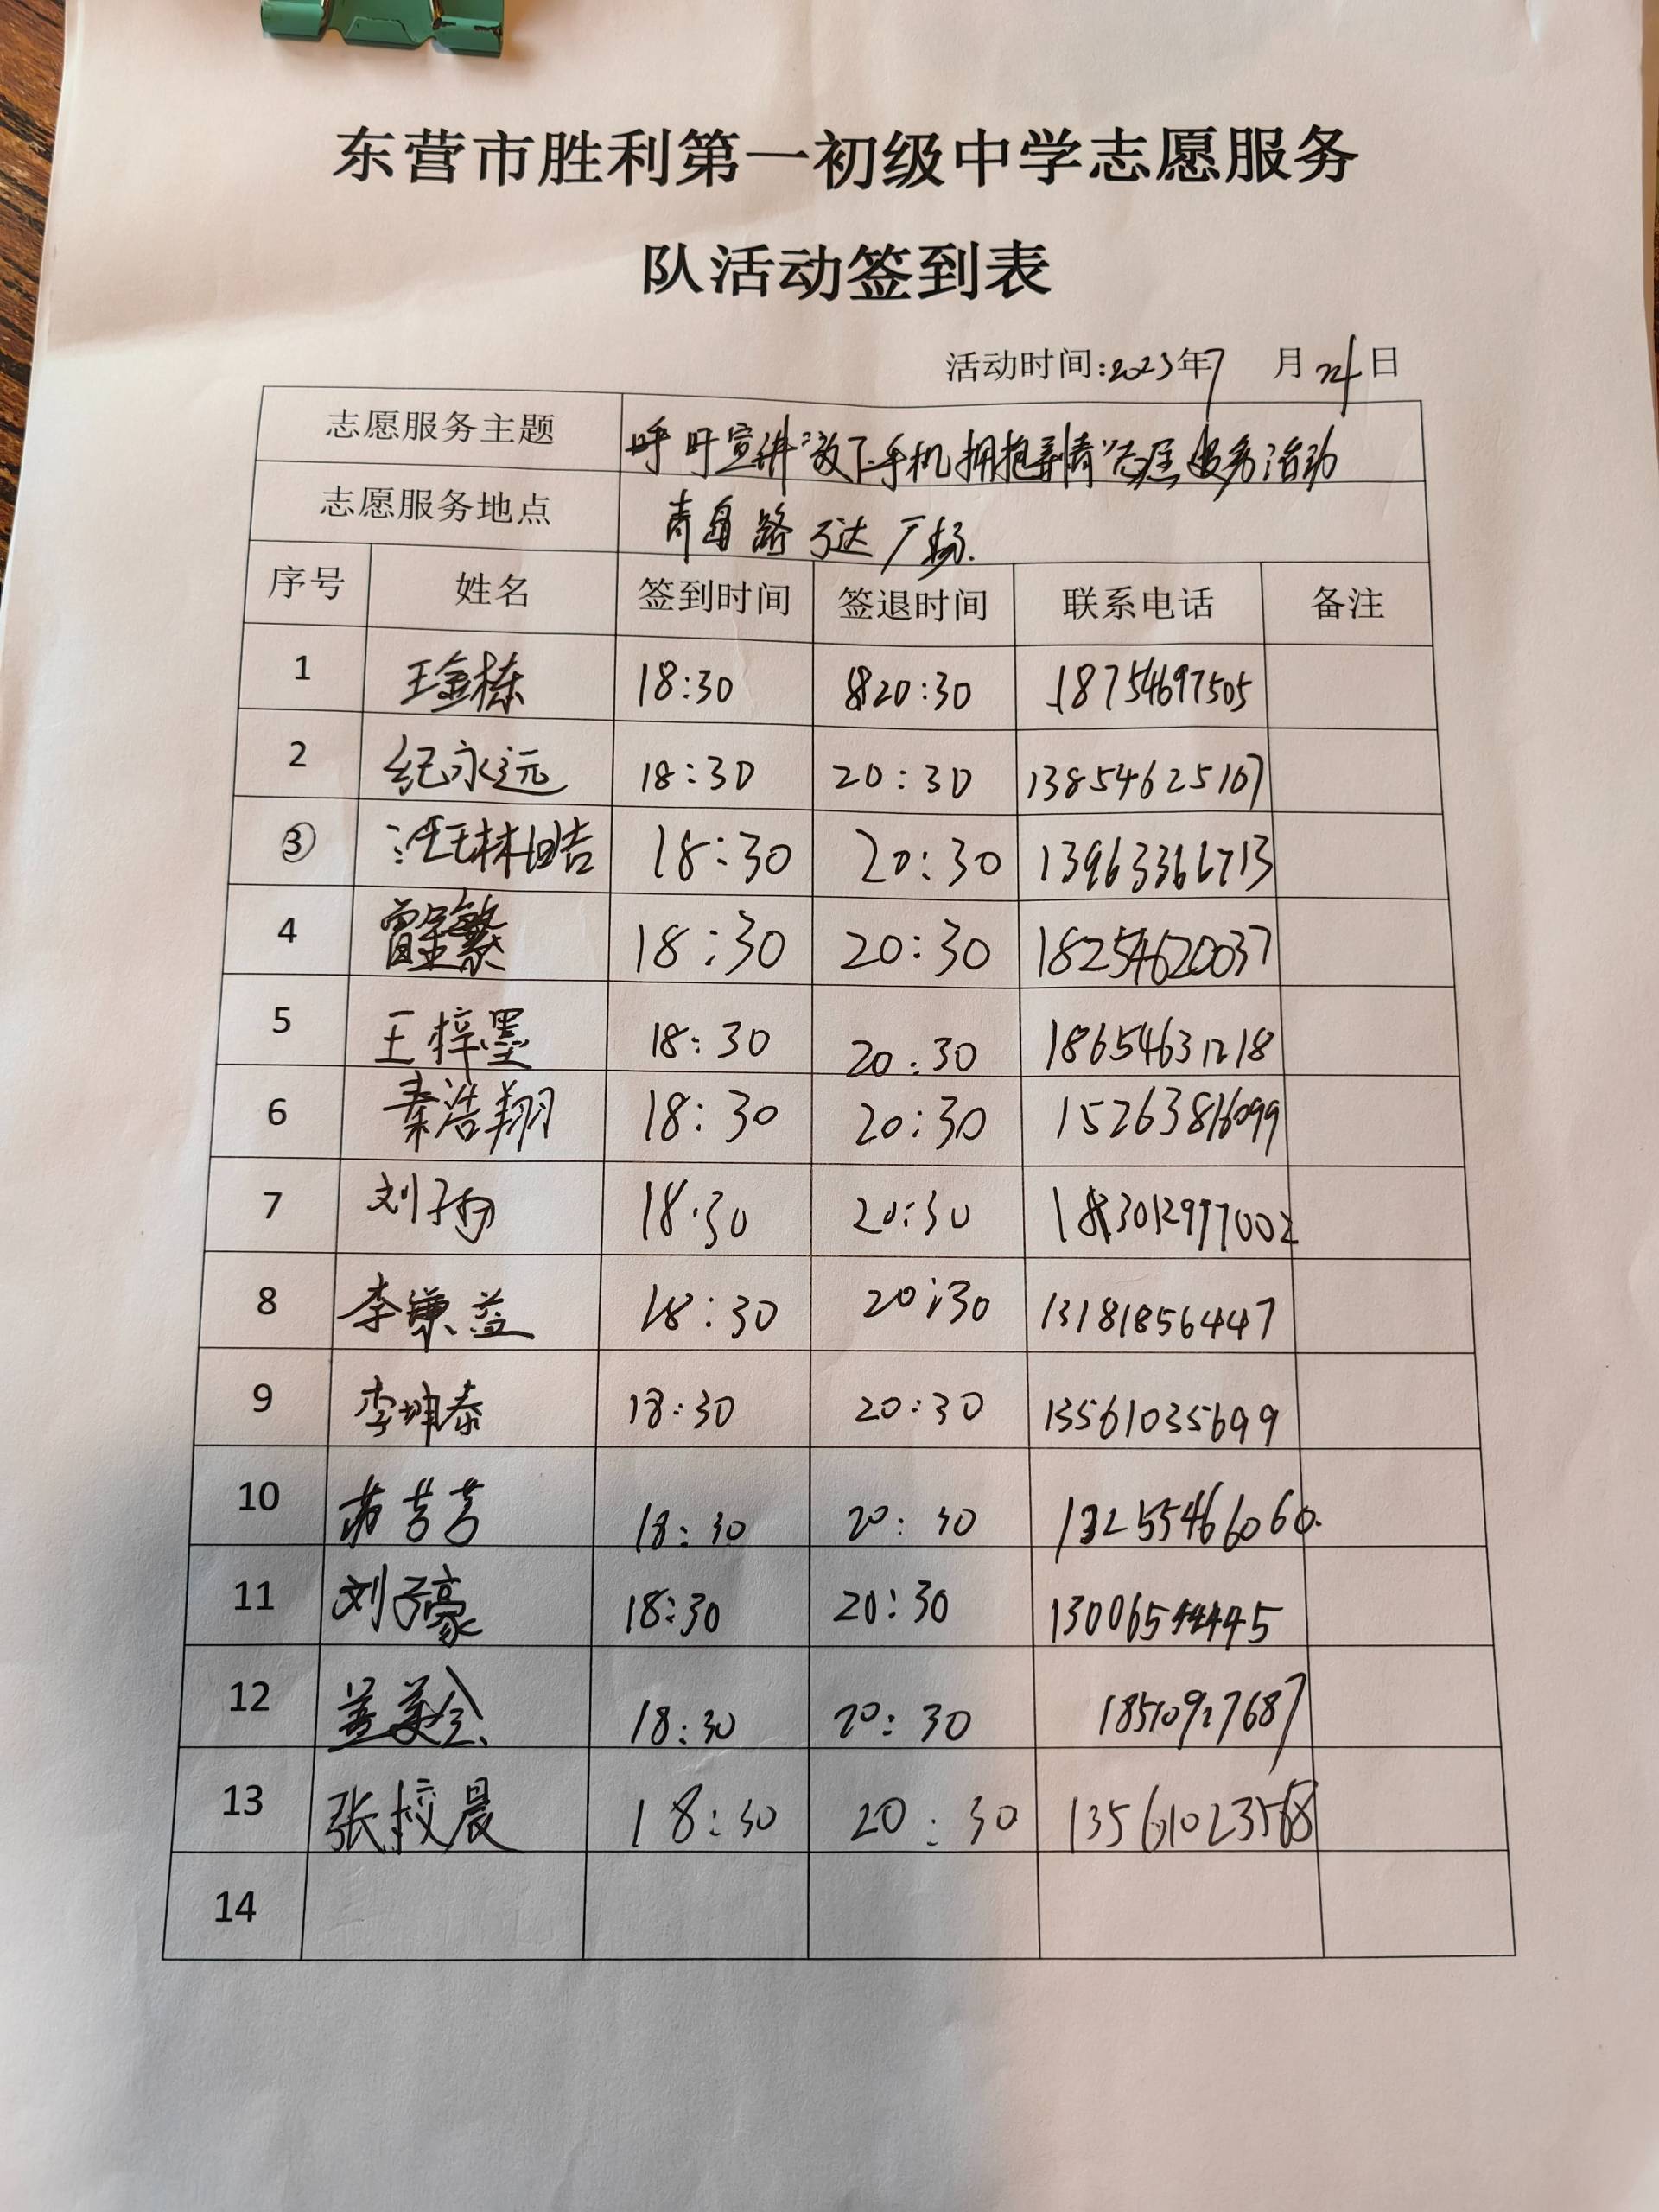 东营市胜利第一初级中学志愿服务
队活动签到表
活动时间:2023年7月24日
志愿服务主题 呼吁宣讲"放下手机拥抱亲情"志愿服务活动
志愿服务地点 青岛路万达广场.
序号 姓名 签到时间 签退时间 联系电话 备注
1 王金栋 18:30 20:30 18754697505
2 纪永远 18:30 20:30 13854625107
3 汪林 18:30 20:30 13963366713
4 曾 繁 18:30 20:30 18254620037
5 王梓墨 18:30 20:30 18654631218
6 秦浩翔 18:30 20:30 15263816099
7 刘子扬 18:30 20:30
8 李 益 18:30 20:30 13181856447
9 李坤泰 18:30 20:30 13561035699
10 芳芳 18:30 20:30 13255466060.
11 刘子豪 18:30 20:30 13006544445
12 盖美 18:30 20:30 18510927687
13 张 晨 18:30 20:30 13561023568
14